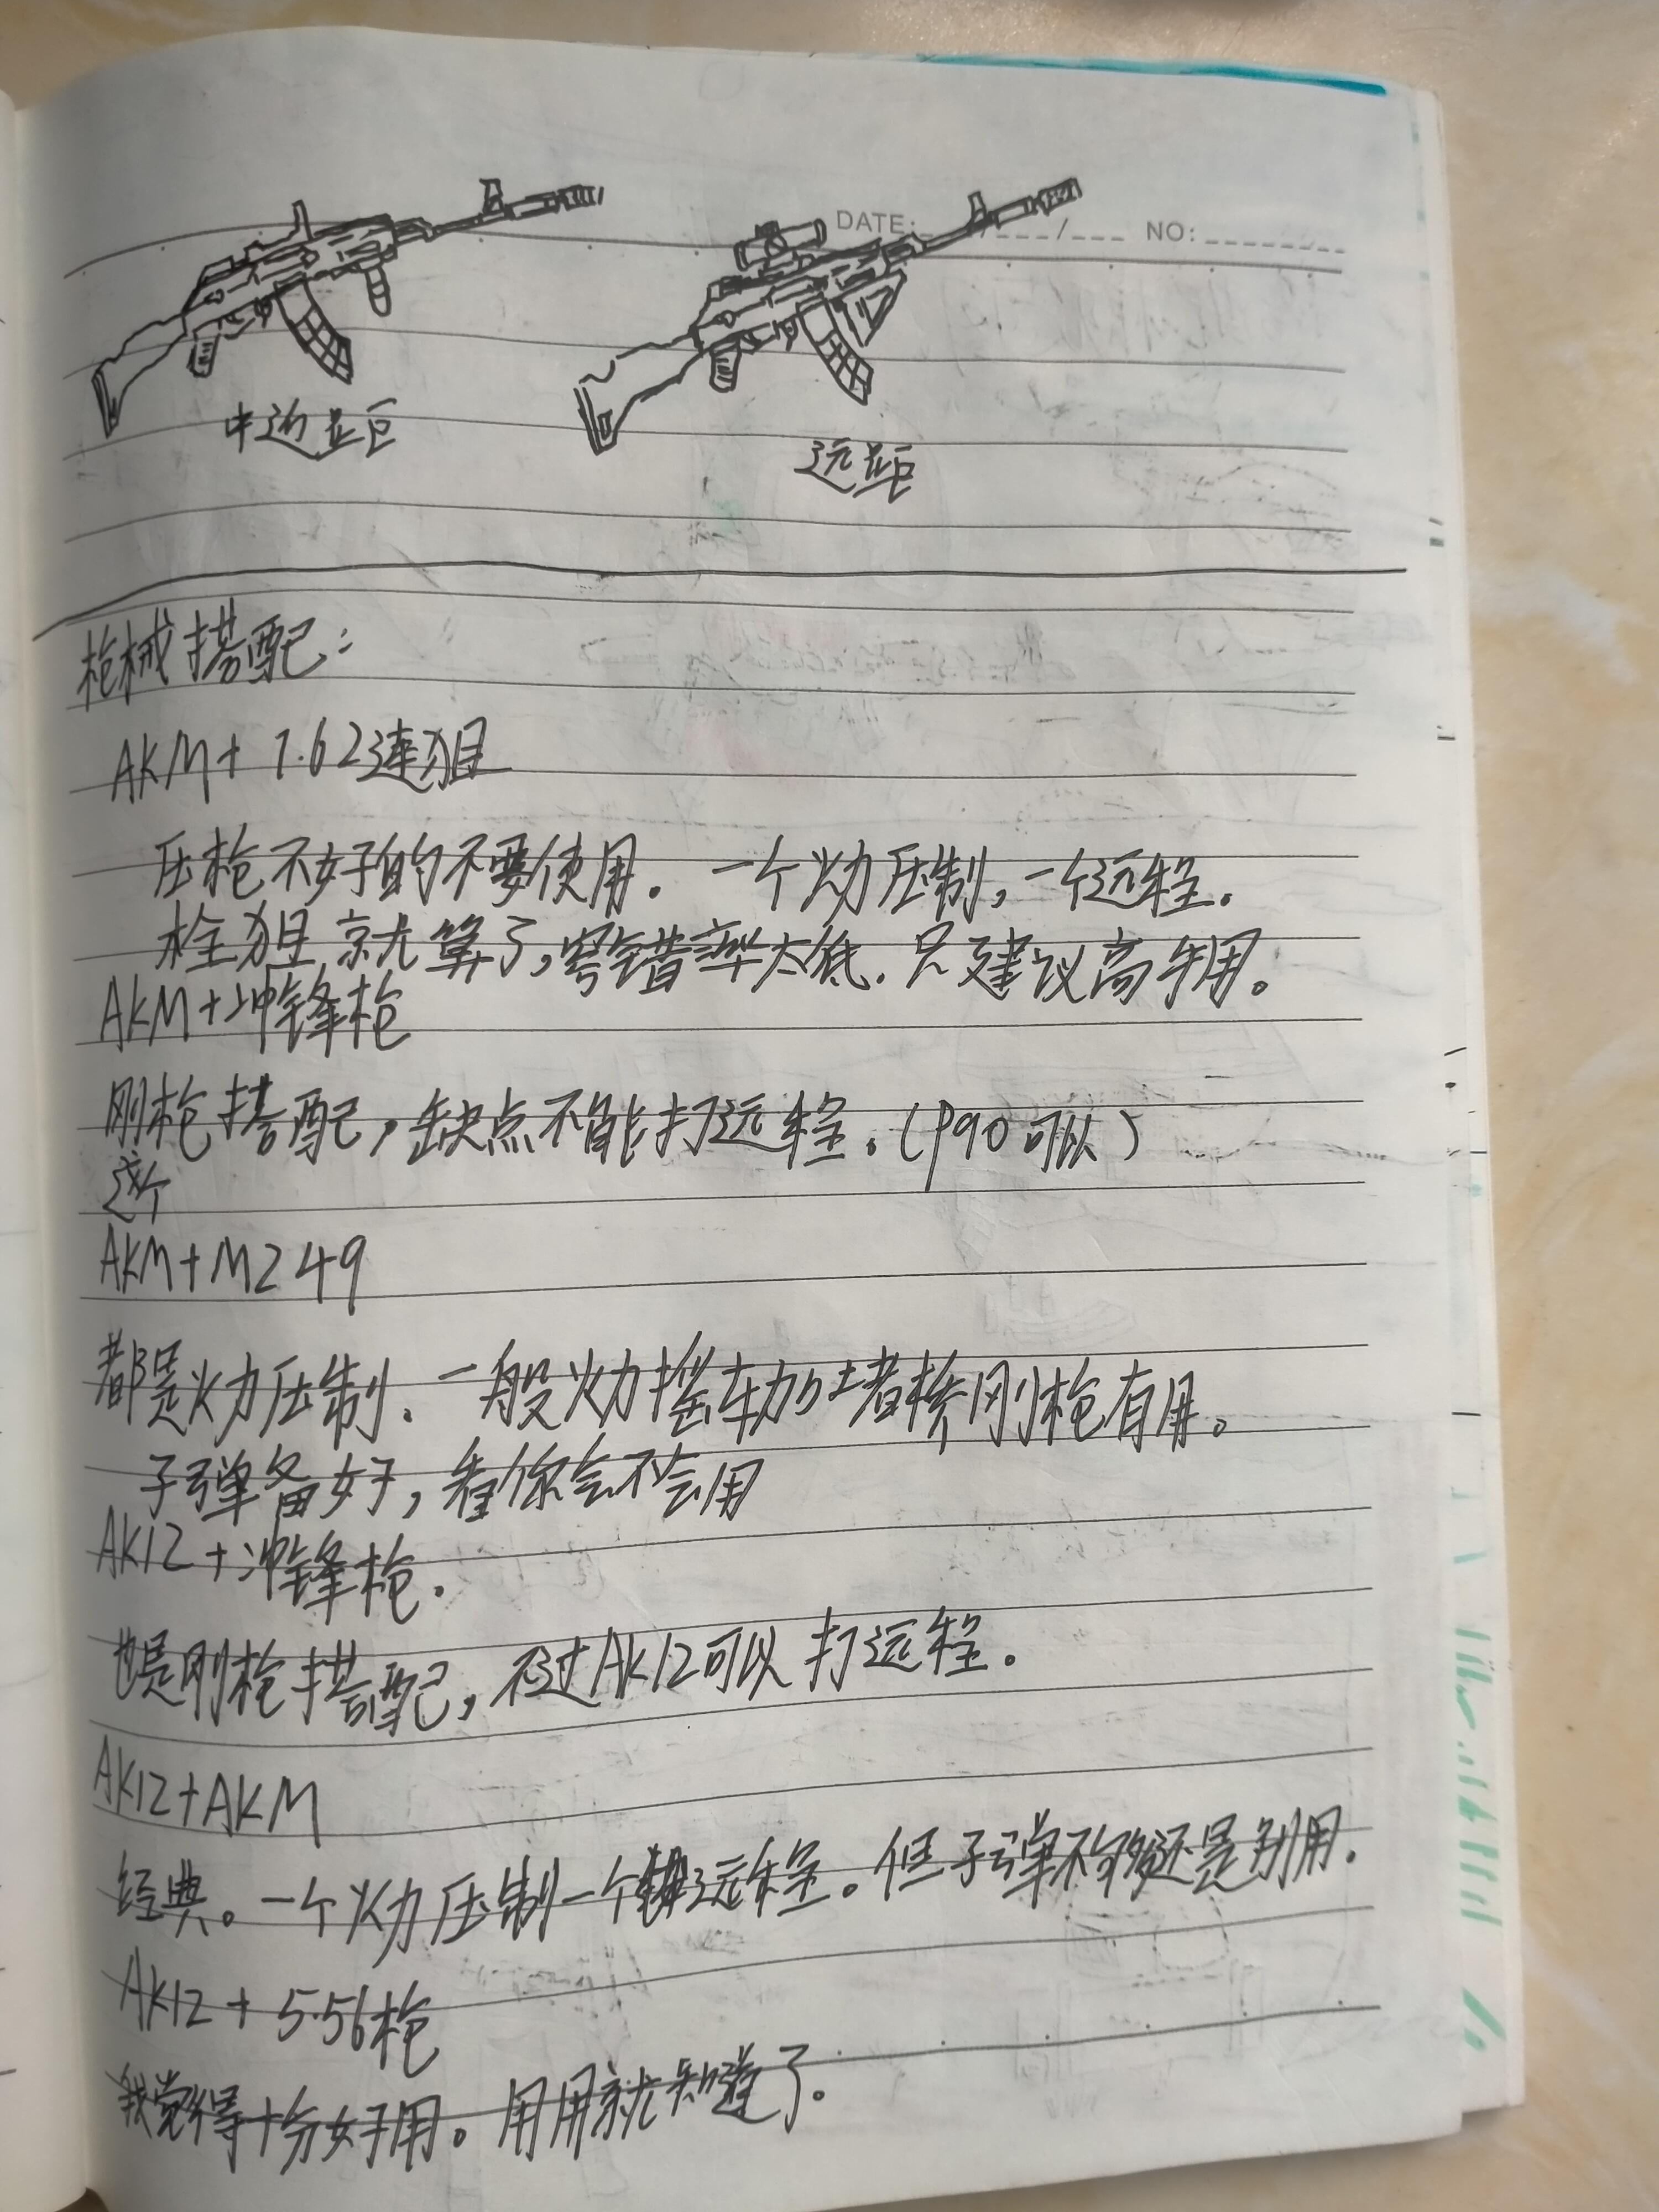 DATE: ___/___/___ NO: ________
中近距
远距
枪械搭配:
AKM+7.62连狙
压枪不好的不要使用。一个火力压制,一个远程。
栓狙就算了,容错率太低.只建议高手用。
AKM+冲锋枪
刚枪搭配,缺点不能打远程。(P90可以)
这个
AKM+M249
都是火力压制.一般火力摇车加堵桥刚枪有用。
子弹备好,看你会不会用
AK12+冲锋枪.
也是刚枪搭配,不过AK12可以打远程。
AK12+AKM
经典。一个火力压制一个远程。但子弹不够还是别用.
AK12+5.56枪
我觉得十分好用。用用就知道了.